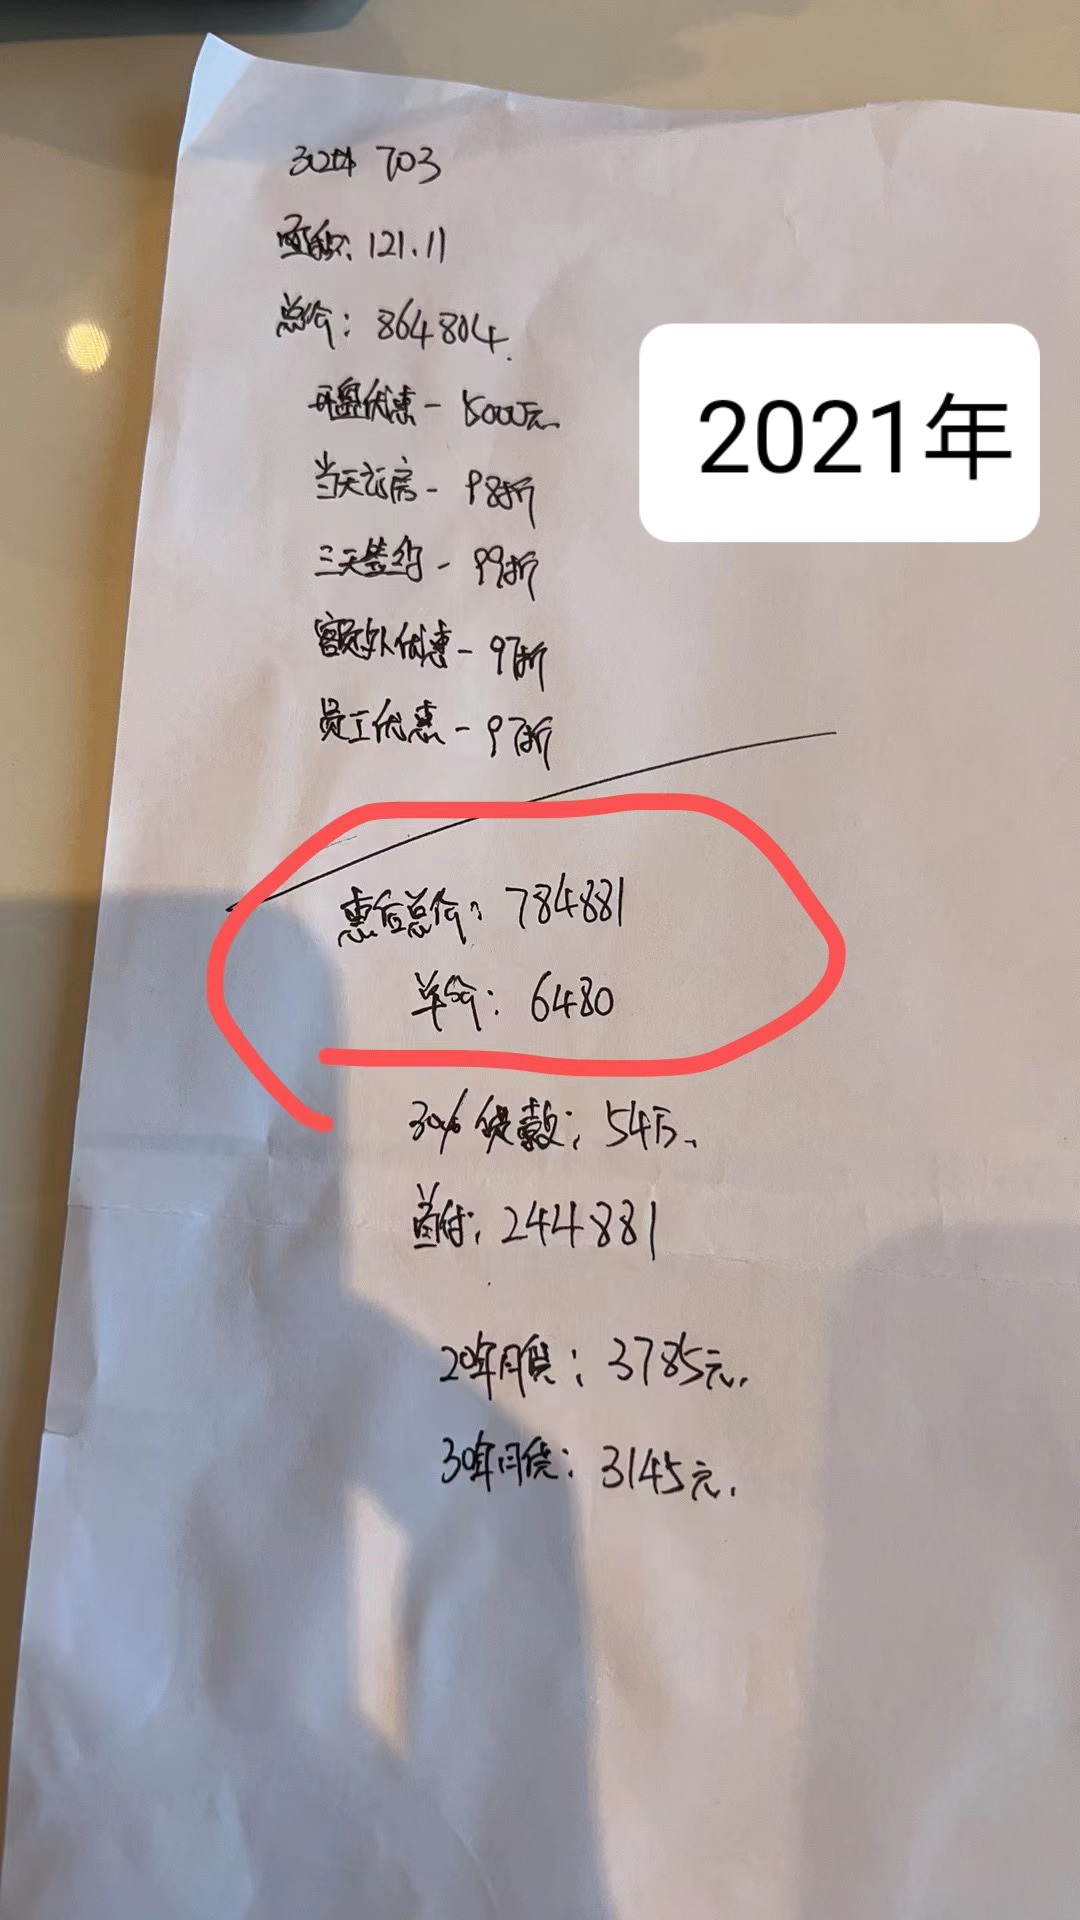 30# 703
面积: 121.11
总价: 864804.
开盘优惠 - 5000元
2021年
当天订房 - 98折
三天签约 - 99折
额外优惠 - 97折
员工优惠 - 97折
惠后总价: 784881
单价: 6480
30% 贷款: 54万.
首付: 244881
20年月贷: 3785元.
30年月贷: 3145元.